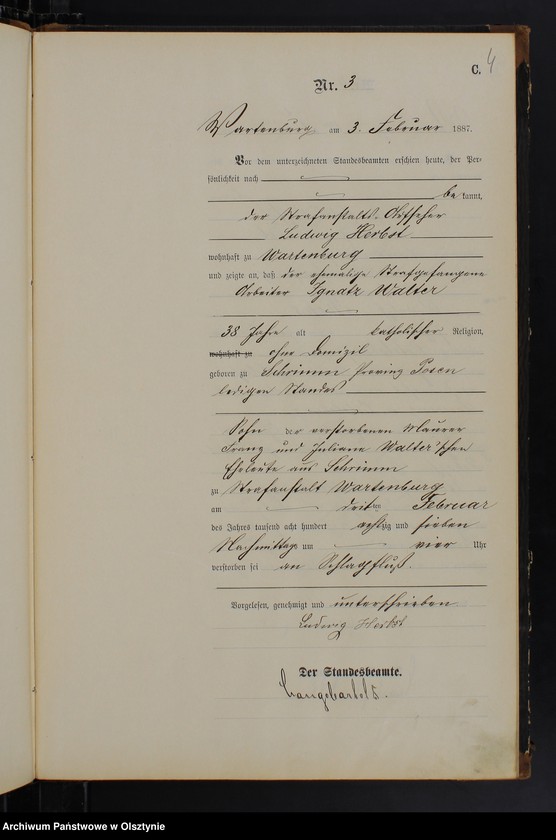 C. 4
Nr. 3
Wartenburg am 3. Februar 1887.
Vor dem unterzeichneten Standesbeamten erschien heute, der Per-
sönlichkeit nach
be kannt,
der Strafanstalts-Aufseher
Ludwig Herbst
wohnhaft zu Wartenburg
und zeigte an, daß der ehemalige Strafgefangene
Arbeiter Ignatz Walter
38 Jahre alt katholischer Religion,
wohnhaft zu ohne Domizil
geboren zu Schrimm Provinz Posen
ledigen Standes
Sohn der verstorbenen Maurer
Franz und Juliana Walter'schen
Eheleute aus Schrimm
zu Strafanstalt Wartenburg
am dritten Februar
des Jahres tausend acht hundert achtzig und sieben
Nachmittags um vier Uhr
verstorben sei an Schlagfluß.
Vorgelesen, genehmigt und unterschrieben
Ludwig Herbst
Der Standesbeamte.
Archiwum Państwowe w Olsztynie